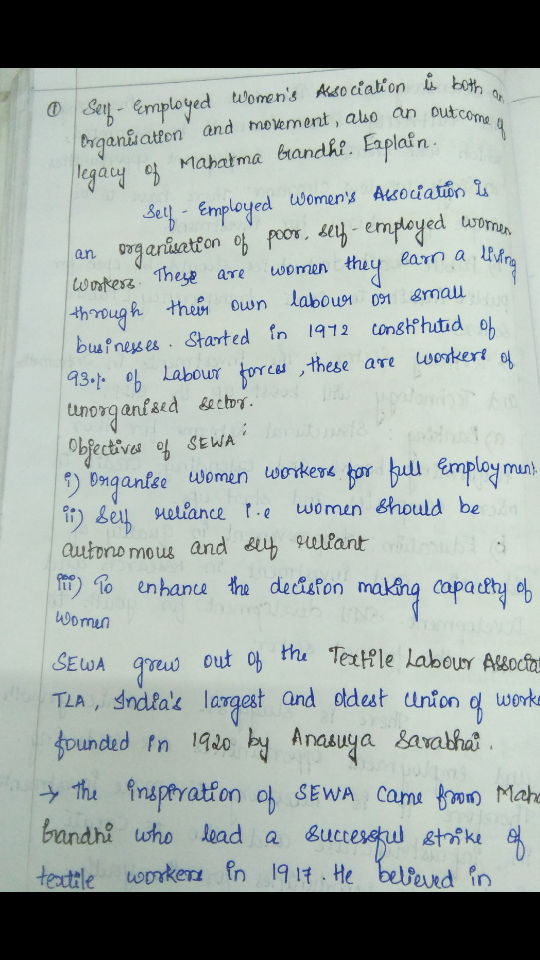 ① Self-Employed Women's Association is both an
Organisation and movement, also an outcome of
legacy of Mahatma Gandhi. Explain.
Self-Employed Women's Association is
an organisation of poor, self-employed women
workers. These are women they earn a living
through their own labour or small
businesses. Started in 1972 constituted of
93.1. of Labour forces, these are workers of
unorganised sector.
Objectives of SEWA:
i) Organise women workers for full Employment
ii) Self reliance i.e women should be
autonomous and self reliant
iii) To enhance the decision making capacity of
women
SEWA grew out of the Textile Labour Associa
TLA, India's largest and oldest union of worke
founded in 1920 by Anasuya Sarabhai.
→ The inspiration of SEWA came from Maha
Gandhi who lead a successful strike of
textile workers in 1917. He believed in